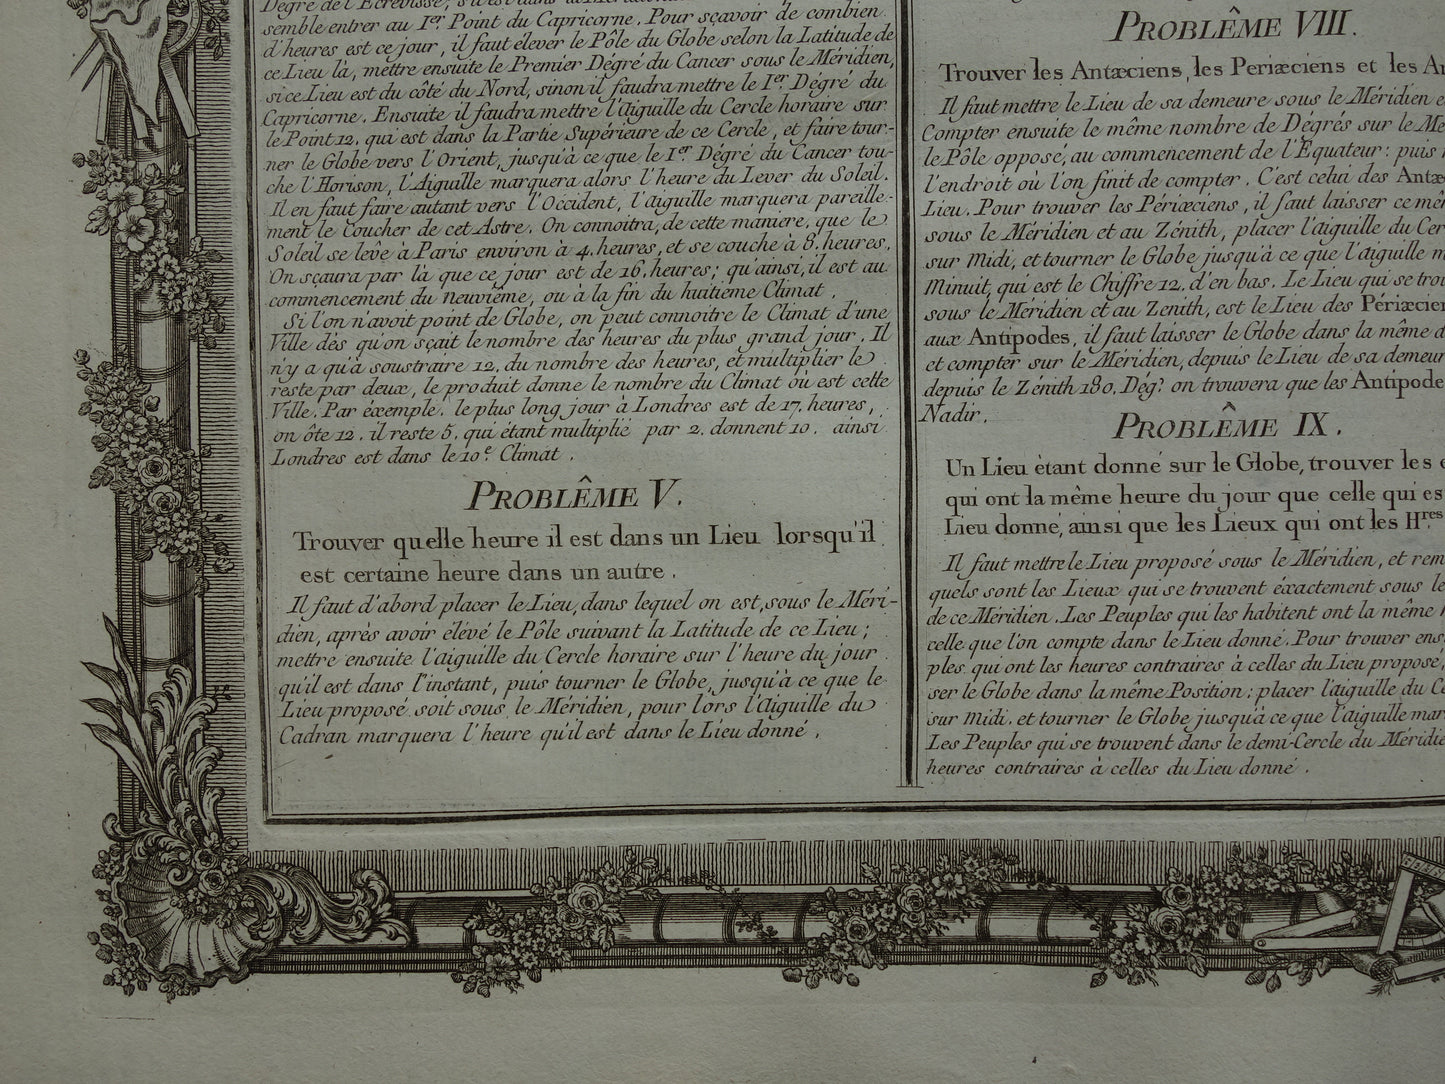 Dégré de l'Ecrevisse, s'il est dans la
semble entrer au I.er Point du Capricorne. Pour sçavoir de combien
d'heures est ce jour, il faut élever le Pôle du Globe selon la Latitude de
ce Lieu là, mettre ensuite le Premier Dégré du Cancer sous le Méridien,
si ce Lieu est du côté du Nord, sinon il faudra mettre le I.er Dégré du
Capricorne. Ensuite il faudra mettre l'Aiguille du Cercle horaire sur
le Point 12. qui est dans la Partie Supérieure de ce Cercle, et faire tour-
ner le Globe vers l'Orient, jusqu'à ce que le I.er Dégré du Cancer tou-
che l'Horison, l'Aiguille marquera alors l'heure du Lever du Soleil.
Il en faut faire autant vers l'Occident, l'aiguille marquera pareille-
ment le Coucher de cet Astre. On connoitra, de cette maniere, que le
Soleil se lève à Paris environ à 4. heures, et se couche à 8. heures.
On sçaura par là que ce jour est de 16. heures; qu'ainsi, il est au
commencement du neuvième, ou à la fin du huitieme Climat.
Si l'on n'avoit point de Globe, on peut connoitre le Climat d'une
Ville dès qu'on sçait le nombre des heures du plus grand jour. Il
n'y a qu'à soustraire 12. du nombre des heures, et multiplier le
reste par deux, le produit donne le nombre du Climat où est cette
Ville. Par éxemple. le plus long jour à Londres est de 17. heures,
on ôte 12. il reste 5. qui étant multiplié par 2. donnent 10. ainsi
Londres est dans le 10.e Climat.
PROBLÊME V.
Trouver quelle heure il est dans un Lieu lorsqu'il
est certaine heure dans un autre.
Il faut d'abord placer le Lieu, dans lequel on est, sous le Méri-
dien, après avoir élévé le Pôle suivant la Latitude de ce Lieu;
mettre ensuite l'aiguille du Cercle horaire sur l'heure du jour
qu'il est dans l'instant, puis tourner le Globe, jusqu'à ce que le
Lieu proposé soit sous le Méridien, pour lors l'Aiguille du
Cadran marquera l'heure qu'il est dans le Lieu donné.
PROBLÊME VIII.
Trouver les Antæciens, les Periæciens et les An
Il faut mettre le Lieu de sa demeure sous le Méridien e
Compter ensuite le même nombre de Dégrés sur le Mé
le Pôle opposé, au commencement de l'Équateur: puis
l'endroit où l'on finit de compter. C'est celui des Antæ
Lieu. Pour trouver les Périæciens, il faut laisser ce mé
sous le Méridien et au Zénith, placer l'aiguille du Cer
sur Midi, et tourner le Globe jusqu'à ce que l'aiguille m
Minuit, qui est le Chiffre 12. d'en bas. Le Lieu qui se trou
sous le Méridien et au Zenith, est le Lieu des Périæcien
aux Antipodes, il faut laisser le Globe dans la même d
et compter sur le Méridien, depuis le Lieu de sa demeur
depuis le Zénith 180. Dég.s on trouvera que les Antipode
Nadir.
PROBLÊME IX.
Un Lieu ètant donné sur le Globe, trouver les e
qui ont la même heure du jour que celle qui es
Lieu donné, ainsi que les Lieux qui ont les H.res
Il faut mettre le Lieu proposé sous le Méridien, et rem
quels sont les Lieux qui se trouvent éxactement sous le
de ce Méridien. Les Peuples qui les habitent ont la même h
celle que l'on compte dans le Lieu donné. Pour trouver ens
ples qui ont les heures contraires à celles du Lieu proposé,
ser le Globe dans la même Position: placer l'aiguille du Ce
sur midi. et tourner le Globe jusqu'à ce que l'aiguille mar
Les Peuples qui se trouvent dans le demi-Cercle du Méridie
heures contraires à celles du Lieu donné.